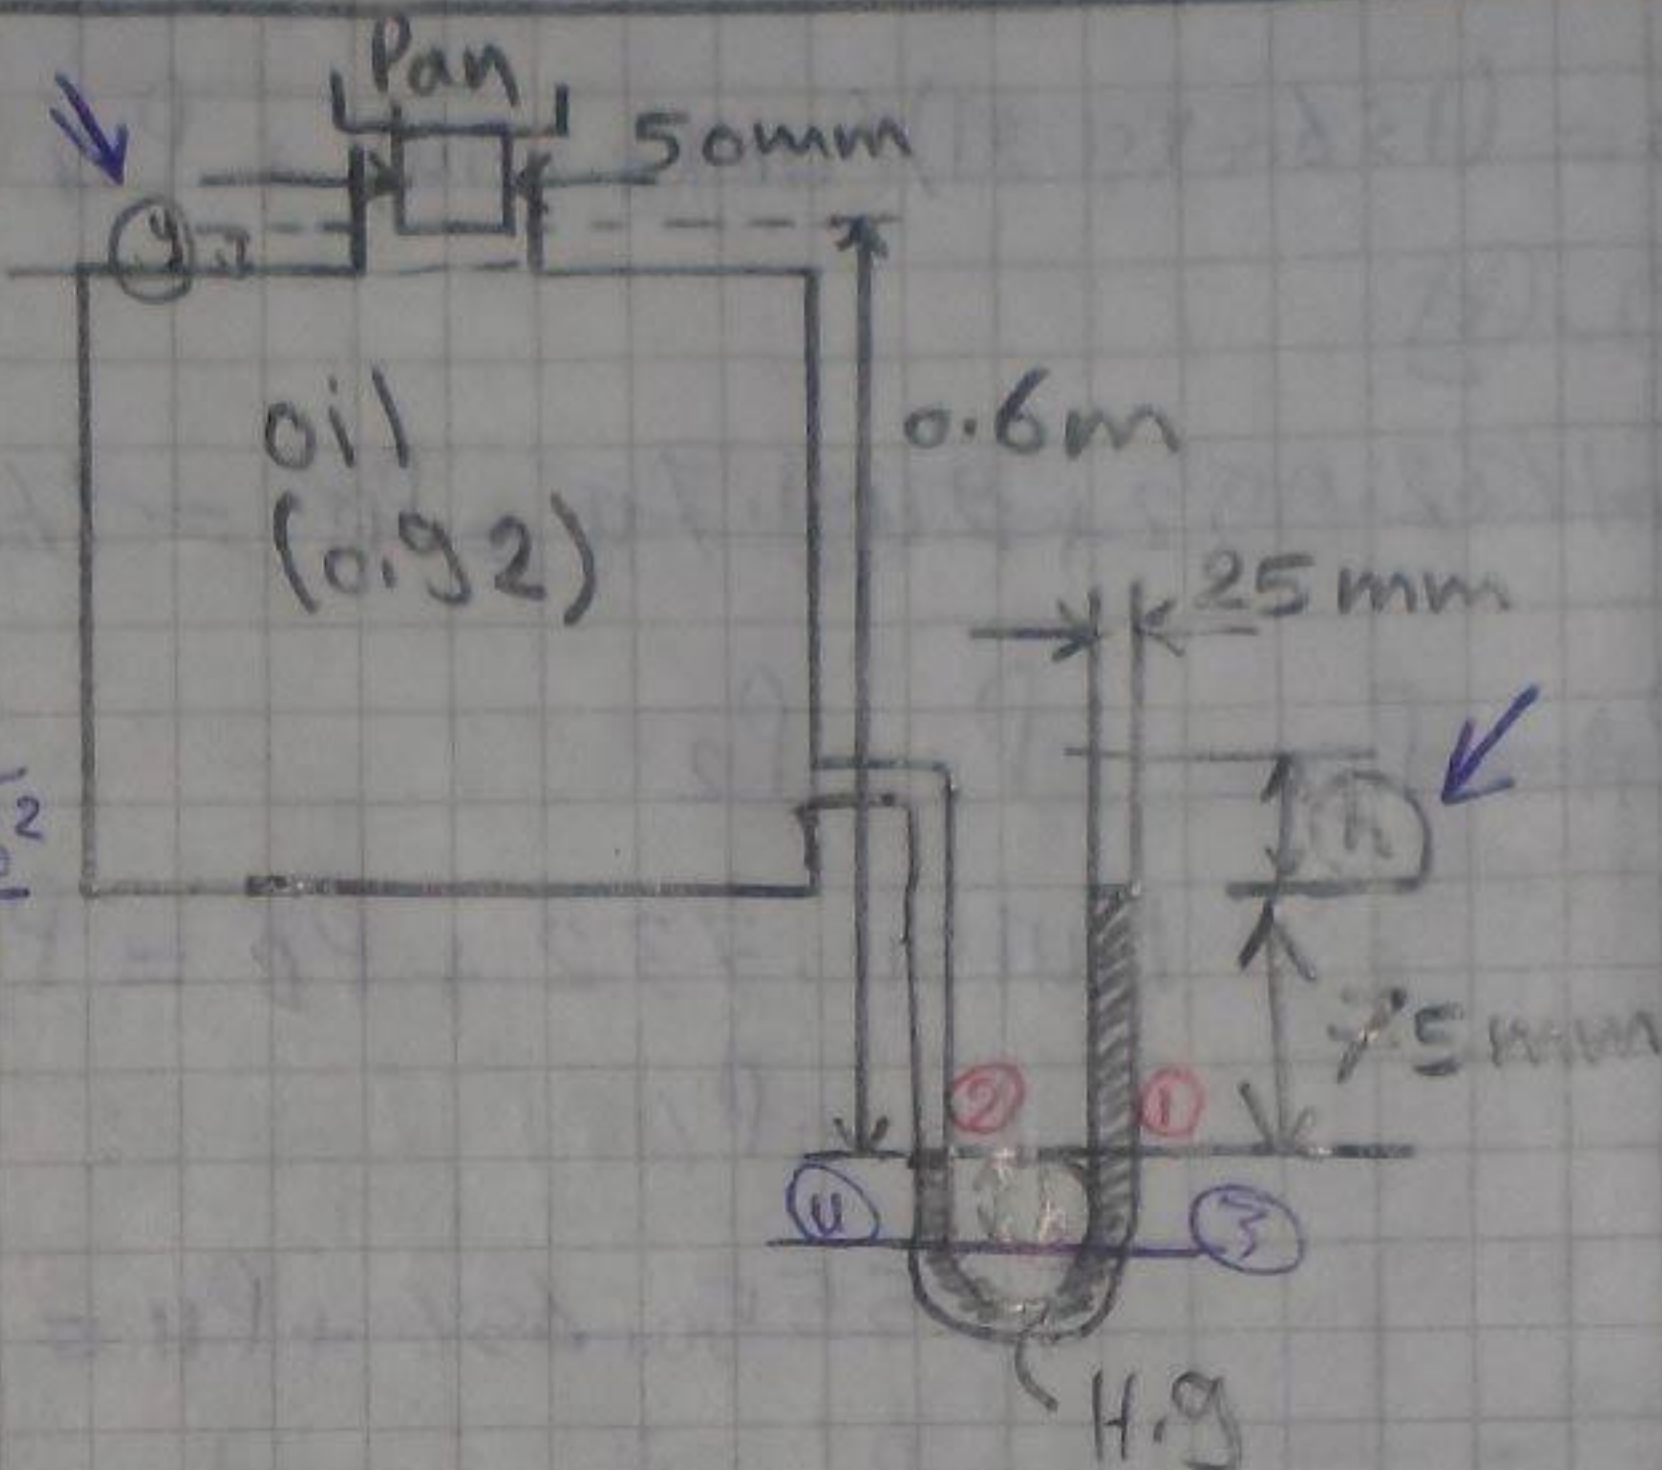 Pan
50mm
y
oil
(0.92)
0.6m
25mm
h
2
75mm
② ①
h
④ ③
H.g